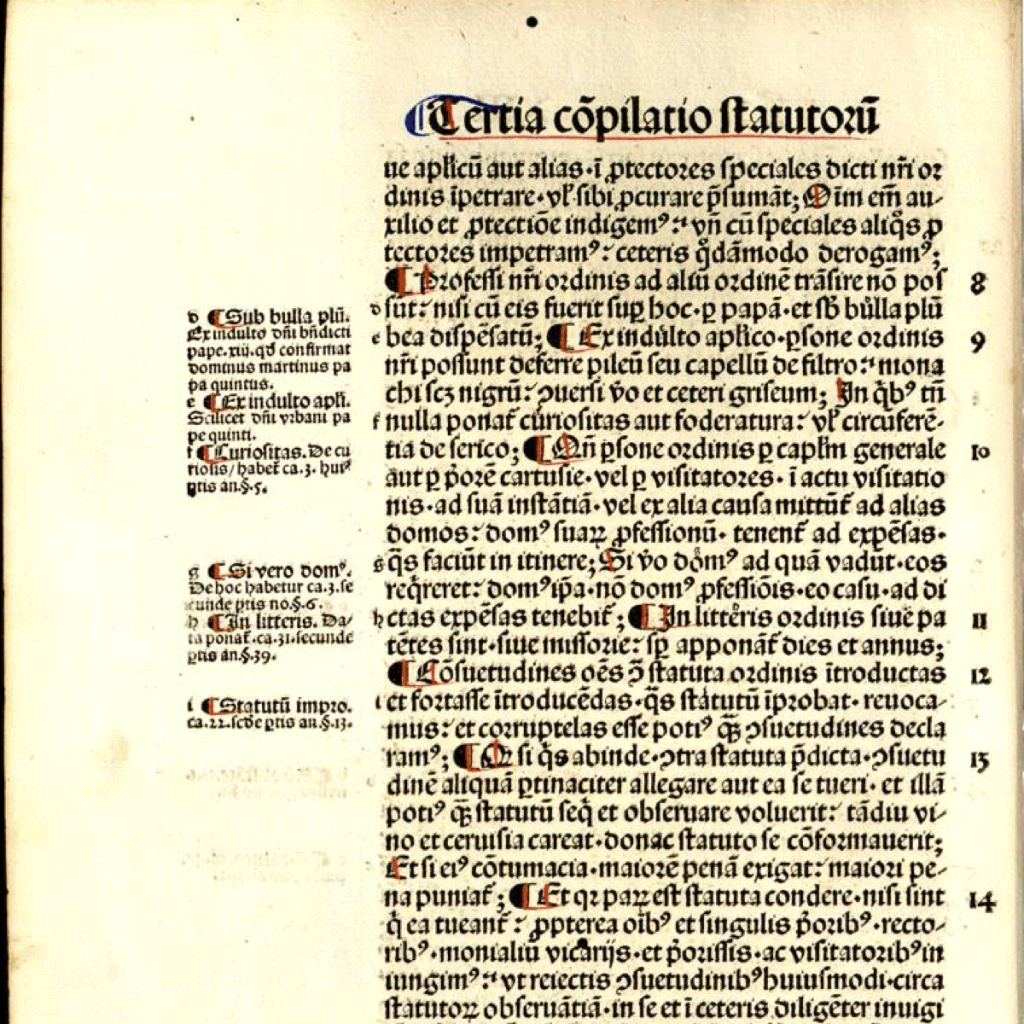 Tertia cõpilatio statutorũ
ue aplicũ aut alias·ĩ ꝓtectores speciales dicti nr̃i or
dinis ĩpetrare·vl̕ sibi ꝓcurare p̃sumãt; Oĩm em̃ au-
xilio et ꝓtectiõe indigemꝰ: vñ cũ speciales aliq̃s ꝓ
tectores impetramꝰ: ceteris q̃dãmodo derogamꝰ;
¶ Professi nr̃i ordinis ad aliũ ordinẽ trãsire nõ pos 8
d sũt: nisi cũ eis fuerit suꝑ hoc·ꝑ papã·et sb̃ bulla plũ
e bea dispẽsatũ; ¶ Ex indulto aplico·ꝑsone ordinis 9
nr̃i possunt deferre pileũ seu capellũ de filtro: mona
chi scꝫ nigrũ: ꝯuersi ṽo et ceteri griseum; In q̃bꝰ tñ
f nulla ponat̃ curiositas aut foderatura: vl̕ circũferẽ-
tia de serico; ¶ Qñ ꝑsone ordinis ꝑ caplm̃ generale 10
aut ꝑ p̃orẽ cartusie·vel ꝑ visitatores·ĩ actu visitatio
nis·ad suã instãtiã·vel ex alia causa mittũt̃ ad alias
domos: domꝰ suaꝝ ꝓfessionũ·tenent̃ ad expẽsas·
g q̃s faciũt in itinere; Si ṽo domꝰ ad quã vadũt·eos
req̃reret: domꝰ ip̃a·nõ domꝰ ꝓfessiõis·eo casu·ad di
h ctas expẽsas tenebit̃; ¶ In litteris ordinis siue pa 11
tẽtes sint·siue missorie: sꝑ apponãt̃ dies et annus;
¶ Cõsuetudines oẽs ꝯ̃ statuta ordinis ĩtroductas 12
i et fortasse ĩtroducẽdas·q̃s statutũ ĩprobat·reuoca-
mus: et corruptelas esse potiꝰ q̃ꝫ ꝯsuetudines decla
ramꝰ; ¶ Q si q̃s abinde·ꝯtra statuta p̃dicta·ꝯsuetu 13
dinẽ aliquã ꝑtinaciter allegare aut ea se tueri·et illã
potiꝰ q̃ꝫ statutũ seq̃ et obseruare voluerit: tãdiu vi-
no et ceruisia careat·donac statuto se cõformauerit;
Et si eiꝰ cõtumacia·maiorẽ penã exigat: maiori pe-
na puniat̃; ¶ Et qꝛ paꝝ est statuta condere·nisi sint 14
q̃ ea tueant̃: ꝓpterea oĩbꝰ et singulis p̃oribꝰ·recto-
ribꝰ·monialiũ vicarijs·et p̃orissis·ac visitatoribꝰ in
iungimꝰ: vt reiectis ꝯsuetudinibꝰ huiusmodi·circa
statutoꝝ obseruãtiã·in se et ĩ ceteris diligẽter inuigi
d ¶ Sub bulla plũ.
Ex indulto dñi bñdicti
pape.xiij.qd̃ confirmat
dominus martinus pa
pa quintus.
e ¶ Ex indulto apli.
Scilicet dñi vrbani pa
pe quinti.
f ¶ Curiositas. De cu
riosis/habet̃ ca.3. huiꝰ
ꝑtis an.§.5.
g ¶ Si vero domꝰ.
De hoc habetur ca.3.se
cunde ꝑtis no.§.6.
h ¶ In litteris. Da-
ta ponat̃.ca.31.secunde
ꝑtis an.§.39.
i ¶ Statutũ impro.
ca.22.scd̃e ꝑtis an.§.13.